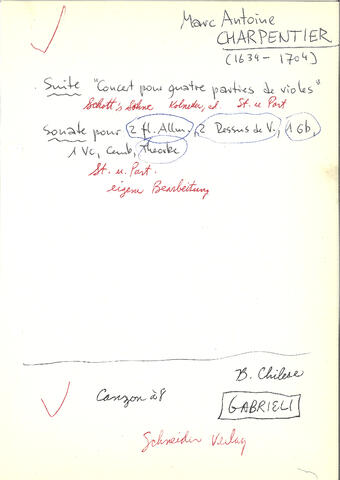 Marc Antoine
CHARPENTIER
(1634 - 1704)
Suite "Concert pour quatre parties de violes"
Schott's Söhne Kolneder, ed. St. u. Part
Sonate pour 2 fl. Allm., 2 Dessus de V., 1 Gb,
1 Vc, Cemb, Theorbe
St. u. Part.
eigene Bearbeitung
B. Chilese
Canzon à 8
GABRIELI
Schneider Verlag